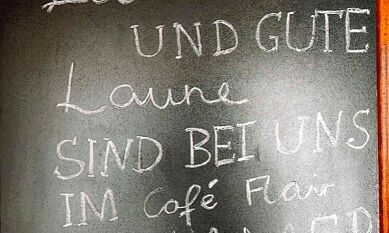 UND GUTE
Laune
SIND BEI UNS
IM Café Flair